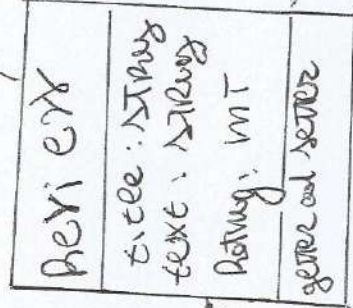 Review
title : STRING
text : STRING
Rating : INT
getter and setter